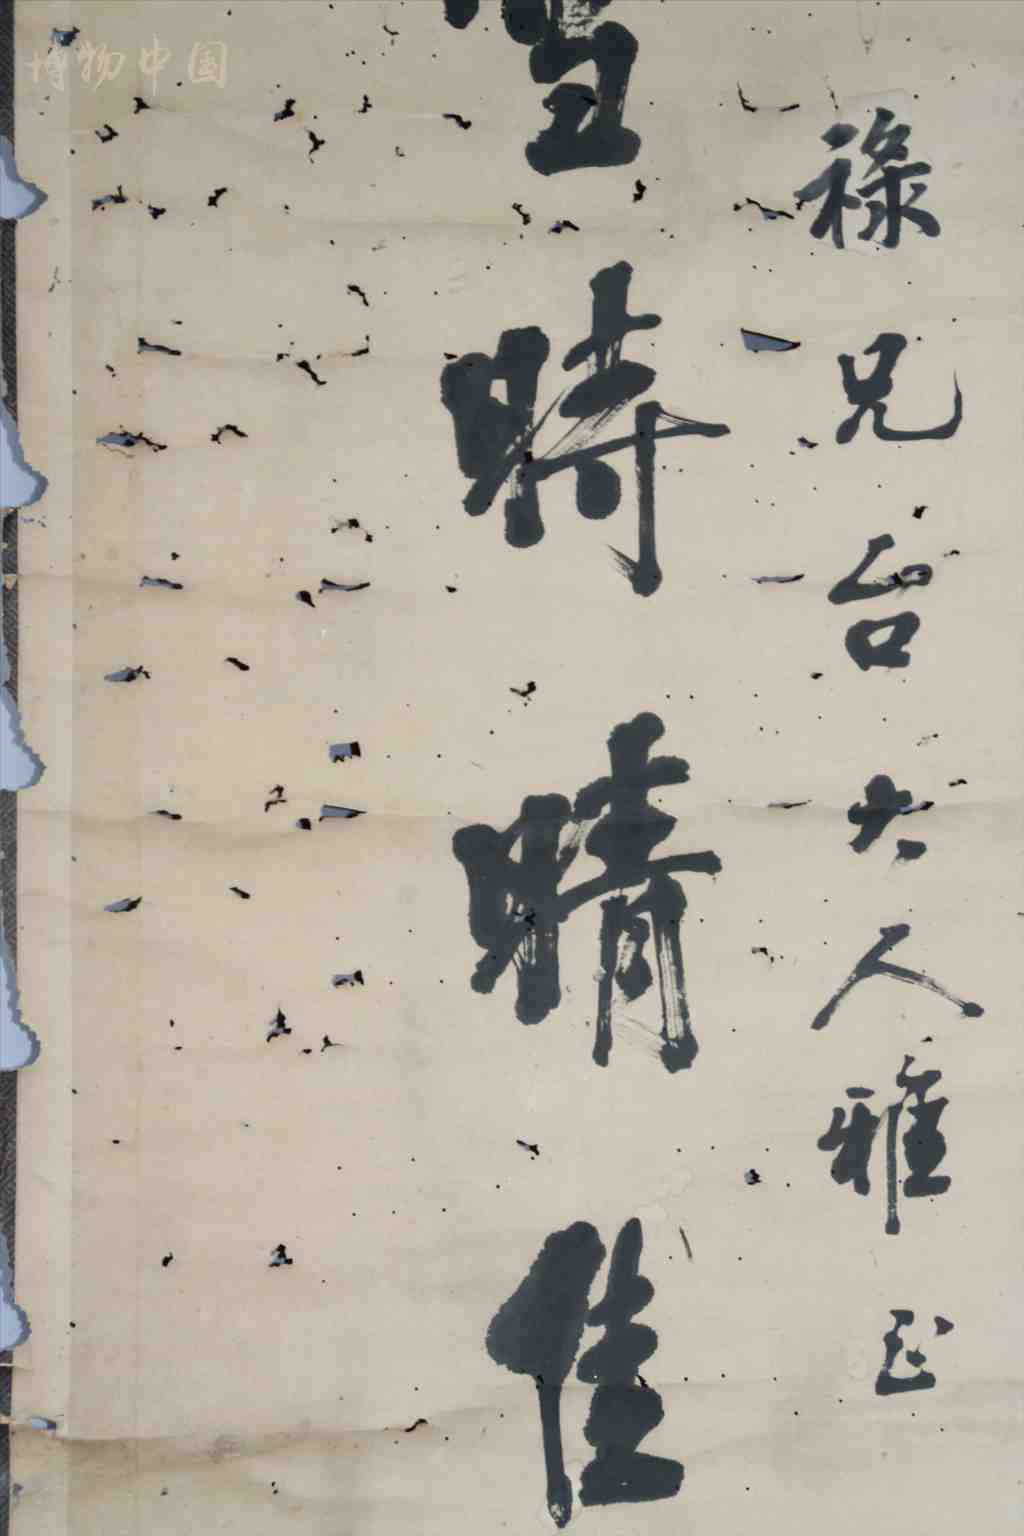 博物中国
祿兄台大人雅正
雪時晴佳